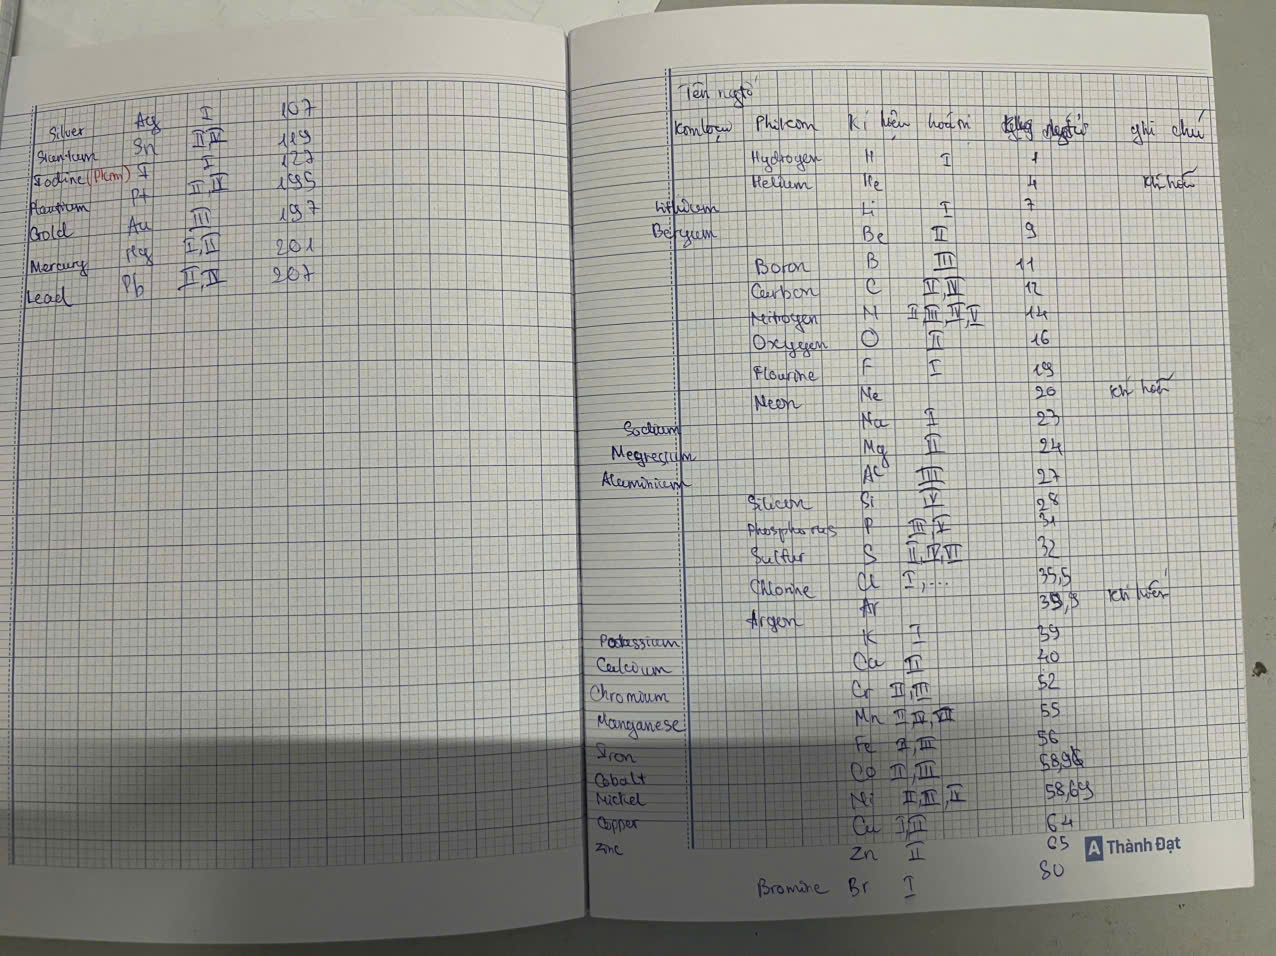 Silver Ag I 107
Stantum Sn II,IV 119
Iodine (Pkm) I I 127
Plantium Pt II,IV 195
Gold Au III 197
Mercury Hg I,II 201
Lead Pb II,IV 207
Tên ngtố
Kim loại Phi kim Kí hiệu hoá trị ngtử ghi chú
Hydrogen H I 1
Helium He 4 khí hiếm
Lithium Li I 7
Beryium Be II 9
Boron B III 11
Carbon C II,IV 12
Nitrogen N II,III,IV,V 14
Oxygen O II 16
Flourine F I 19
Neon Ne 20 khí hiếm
Sodium Na I 23
Megresium Mg II 24
Aluminium Al III 27
Silicon Si IV 28
Phosphorus P III,V 31
Sulfur S II,IV,VI 32
Chlorine Cl I,... 35,5
Argon Ar 39,9 khí hiếm
Potassium K I 39
Calcium Ca II 40
Chromium Cr II,III 52
Manganese Mn II,IV,VII 55
Iron Fe II,III 56
Cobalt Co II,III 58,93
Nickel Ni II,III,IV 58,69
Copper Cu I,II 64
Zinc Zn II 65
Bromine Br I 80
A Thành Đạt